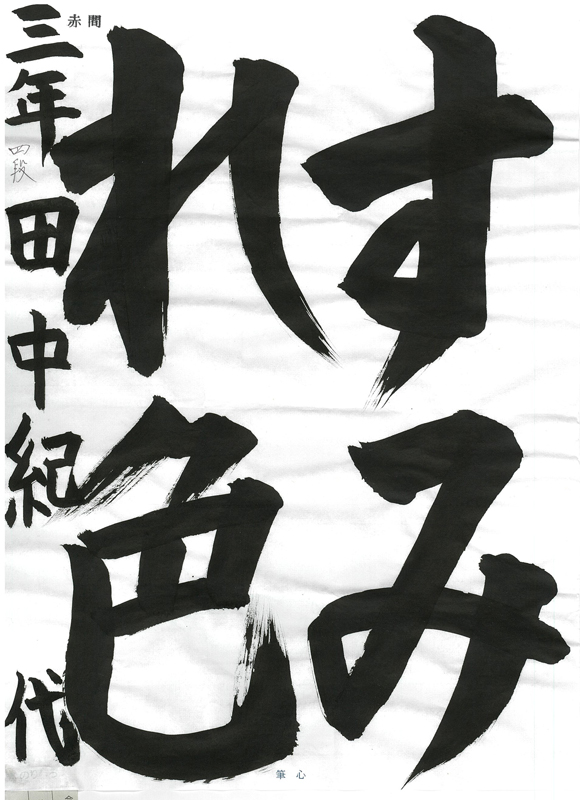 すみ
れ色
三年 四段 田中紀代
赤間
筆心